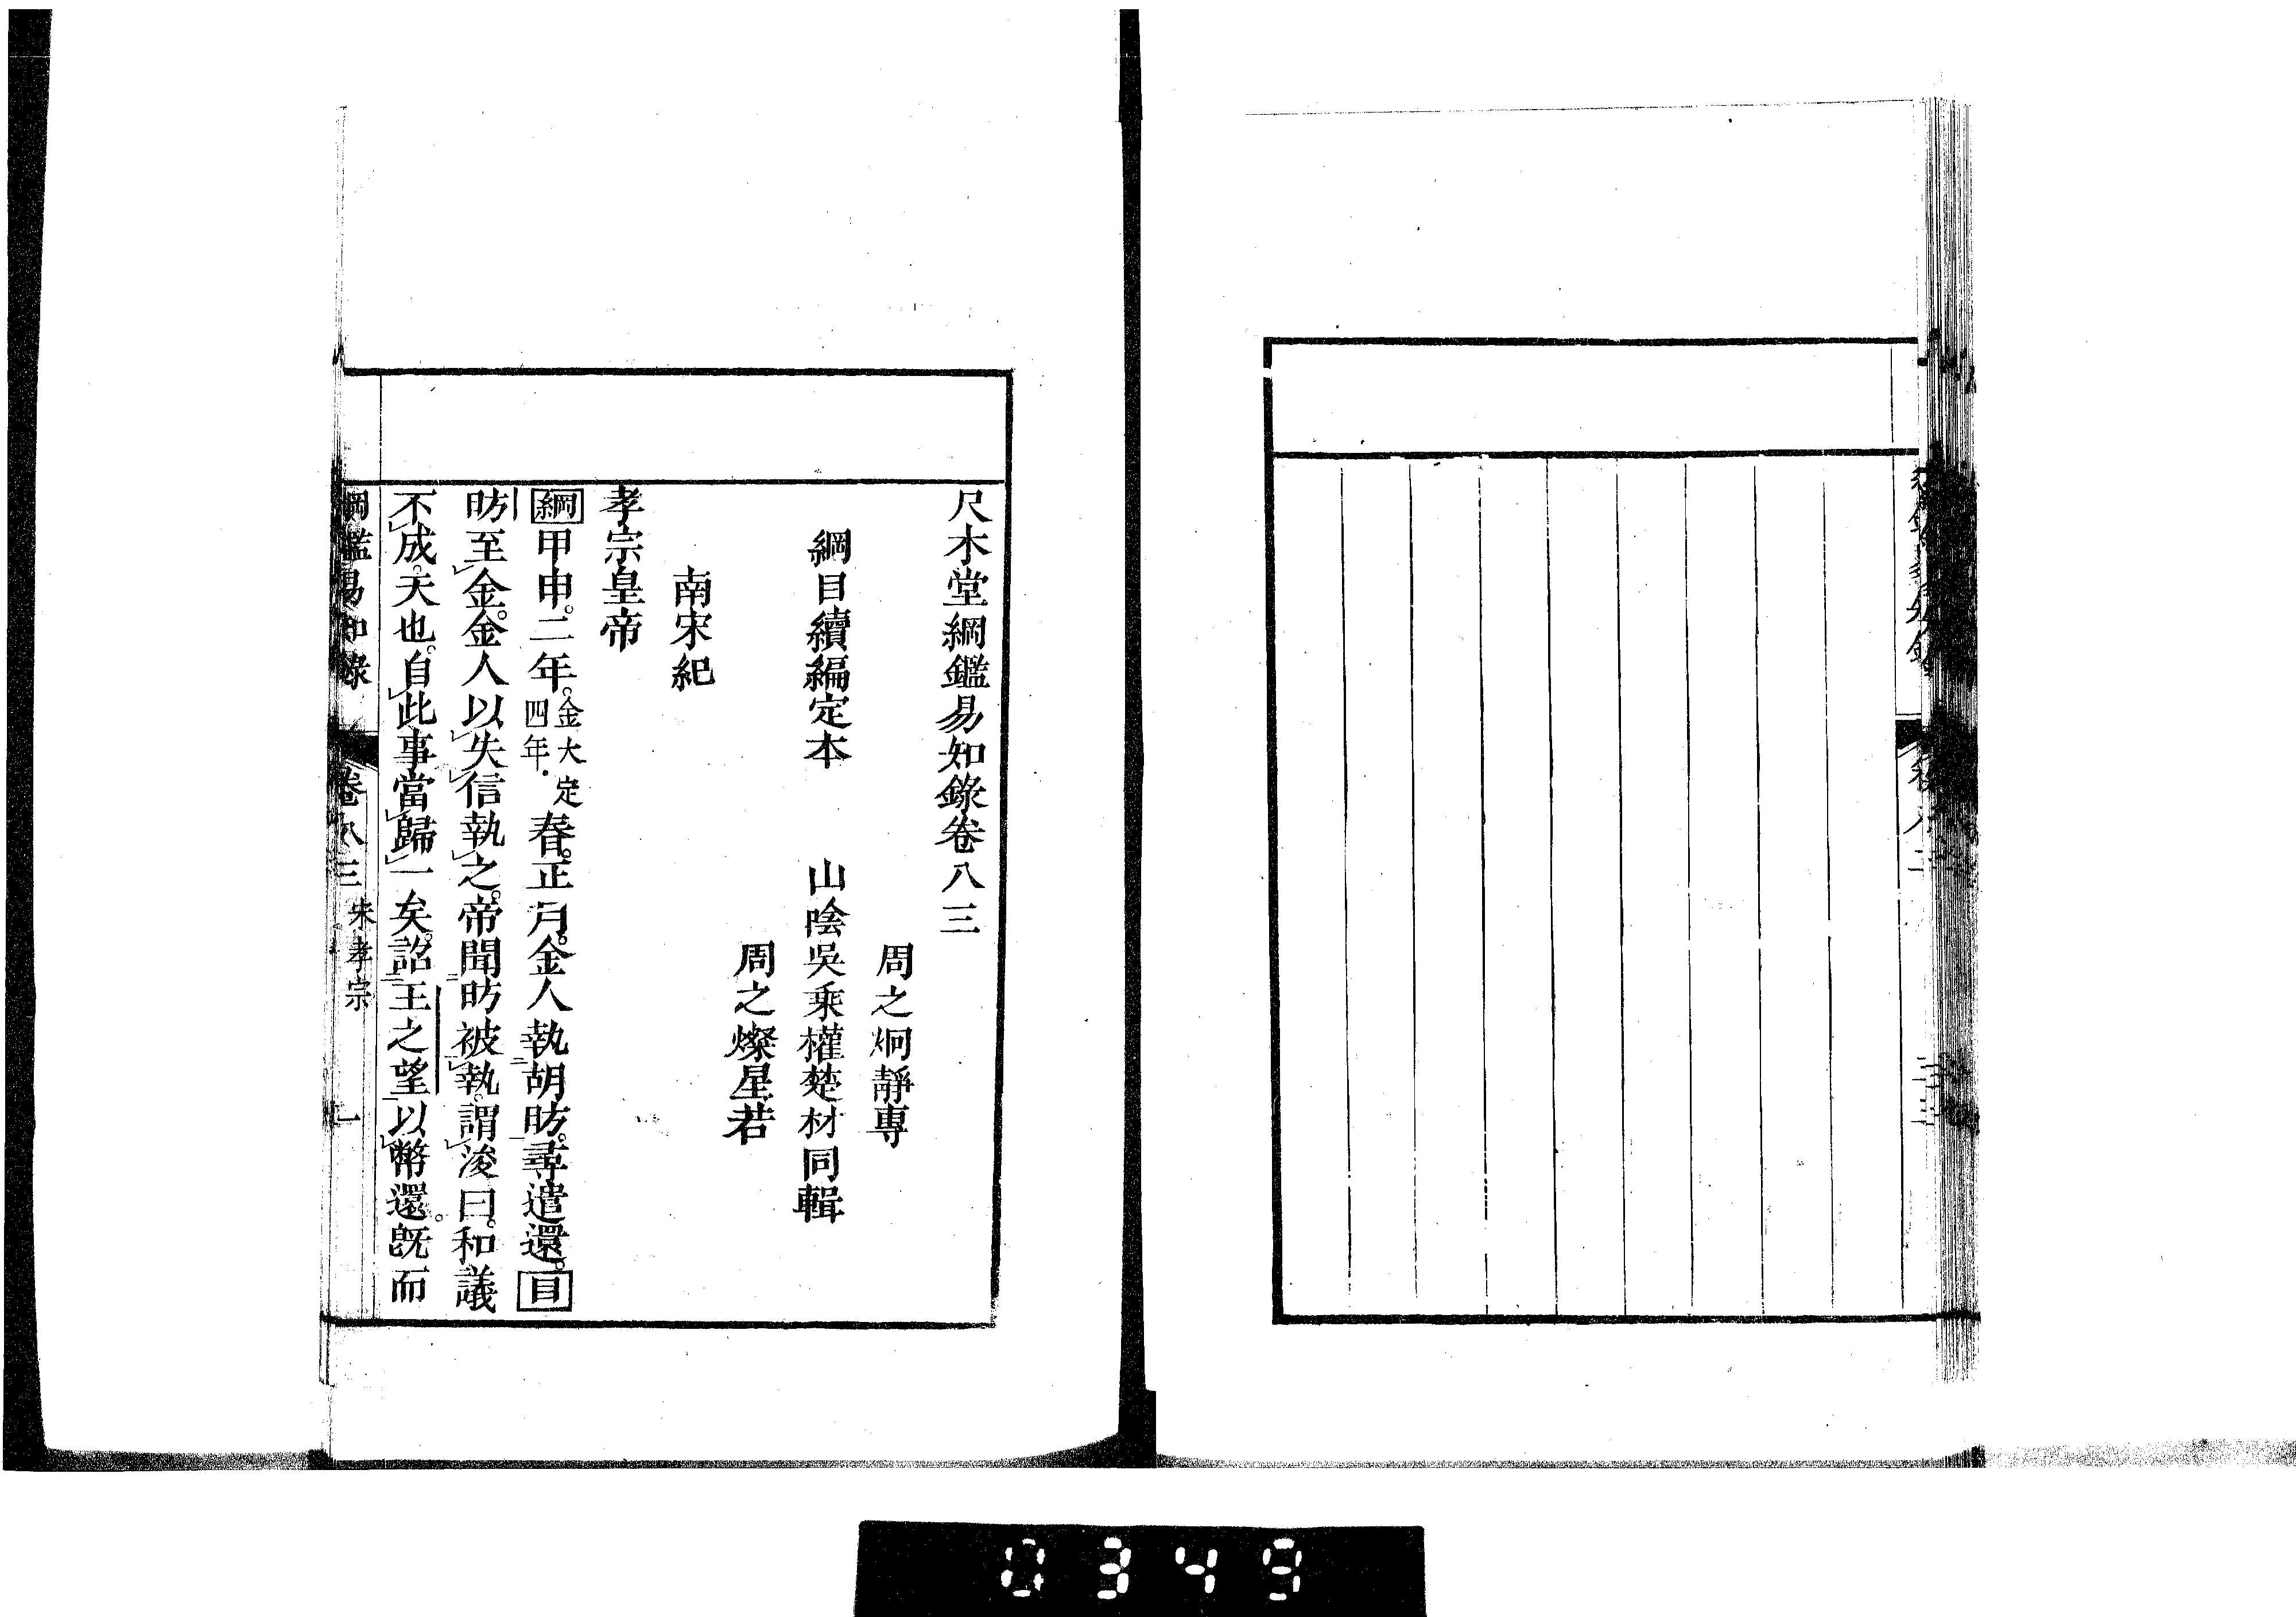 尺木堂綱鑑易知錄卷八三
周之炯靜專
綱目續編定本　山陰吳乘權楚材同輯
周之燦星若
南宋紀
孝宗皇帝
綱甲申。二年。金大定四年。春。正月。金人執胡昉。尋遣還。目
昉至金。金人以失信執之。帝聞昉被執。謂浚曰。和議
不成。天也。自此事當歸一矣。詔王之望以幣還。既而
綱鑑易知錄　卷八三　宋孝宗　一
0349